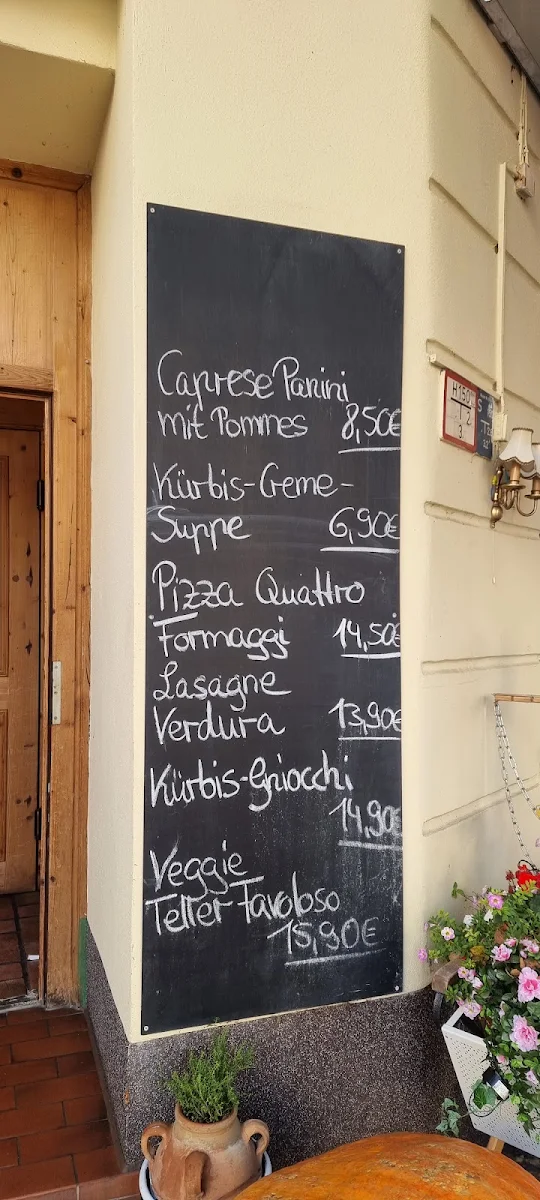 Caprese Panini
mit Pommes 8,50€
Kürbis-Creme-
Suppe 6,90€
Pizza Quattro
Formaggi 14,50€
Lasagne
Verdura 13,90€
Kürbis-Gniocchi
14,90€
Veggie
Teller Favoloso
15,90€
H150